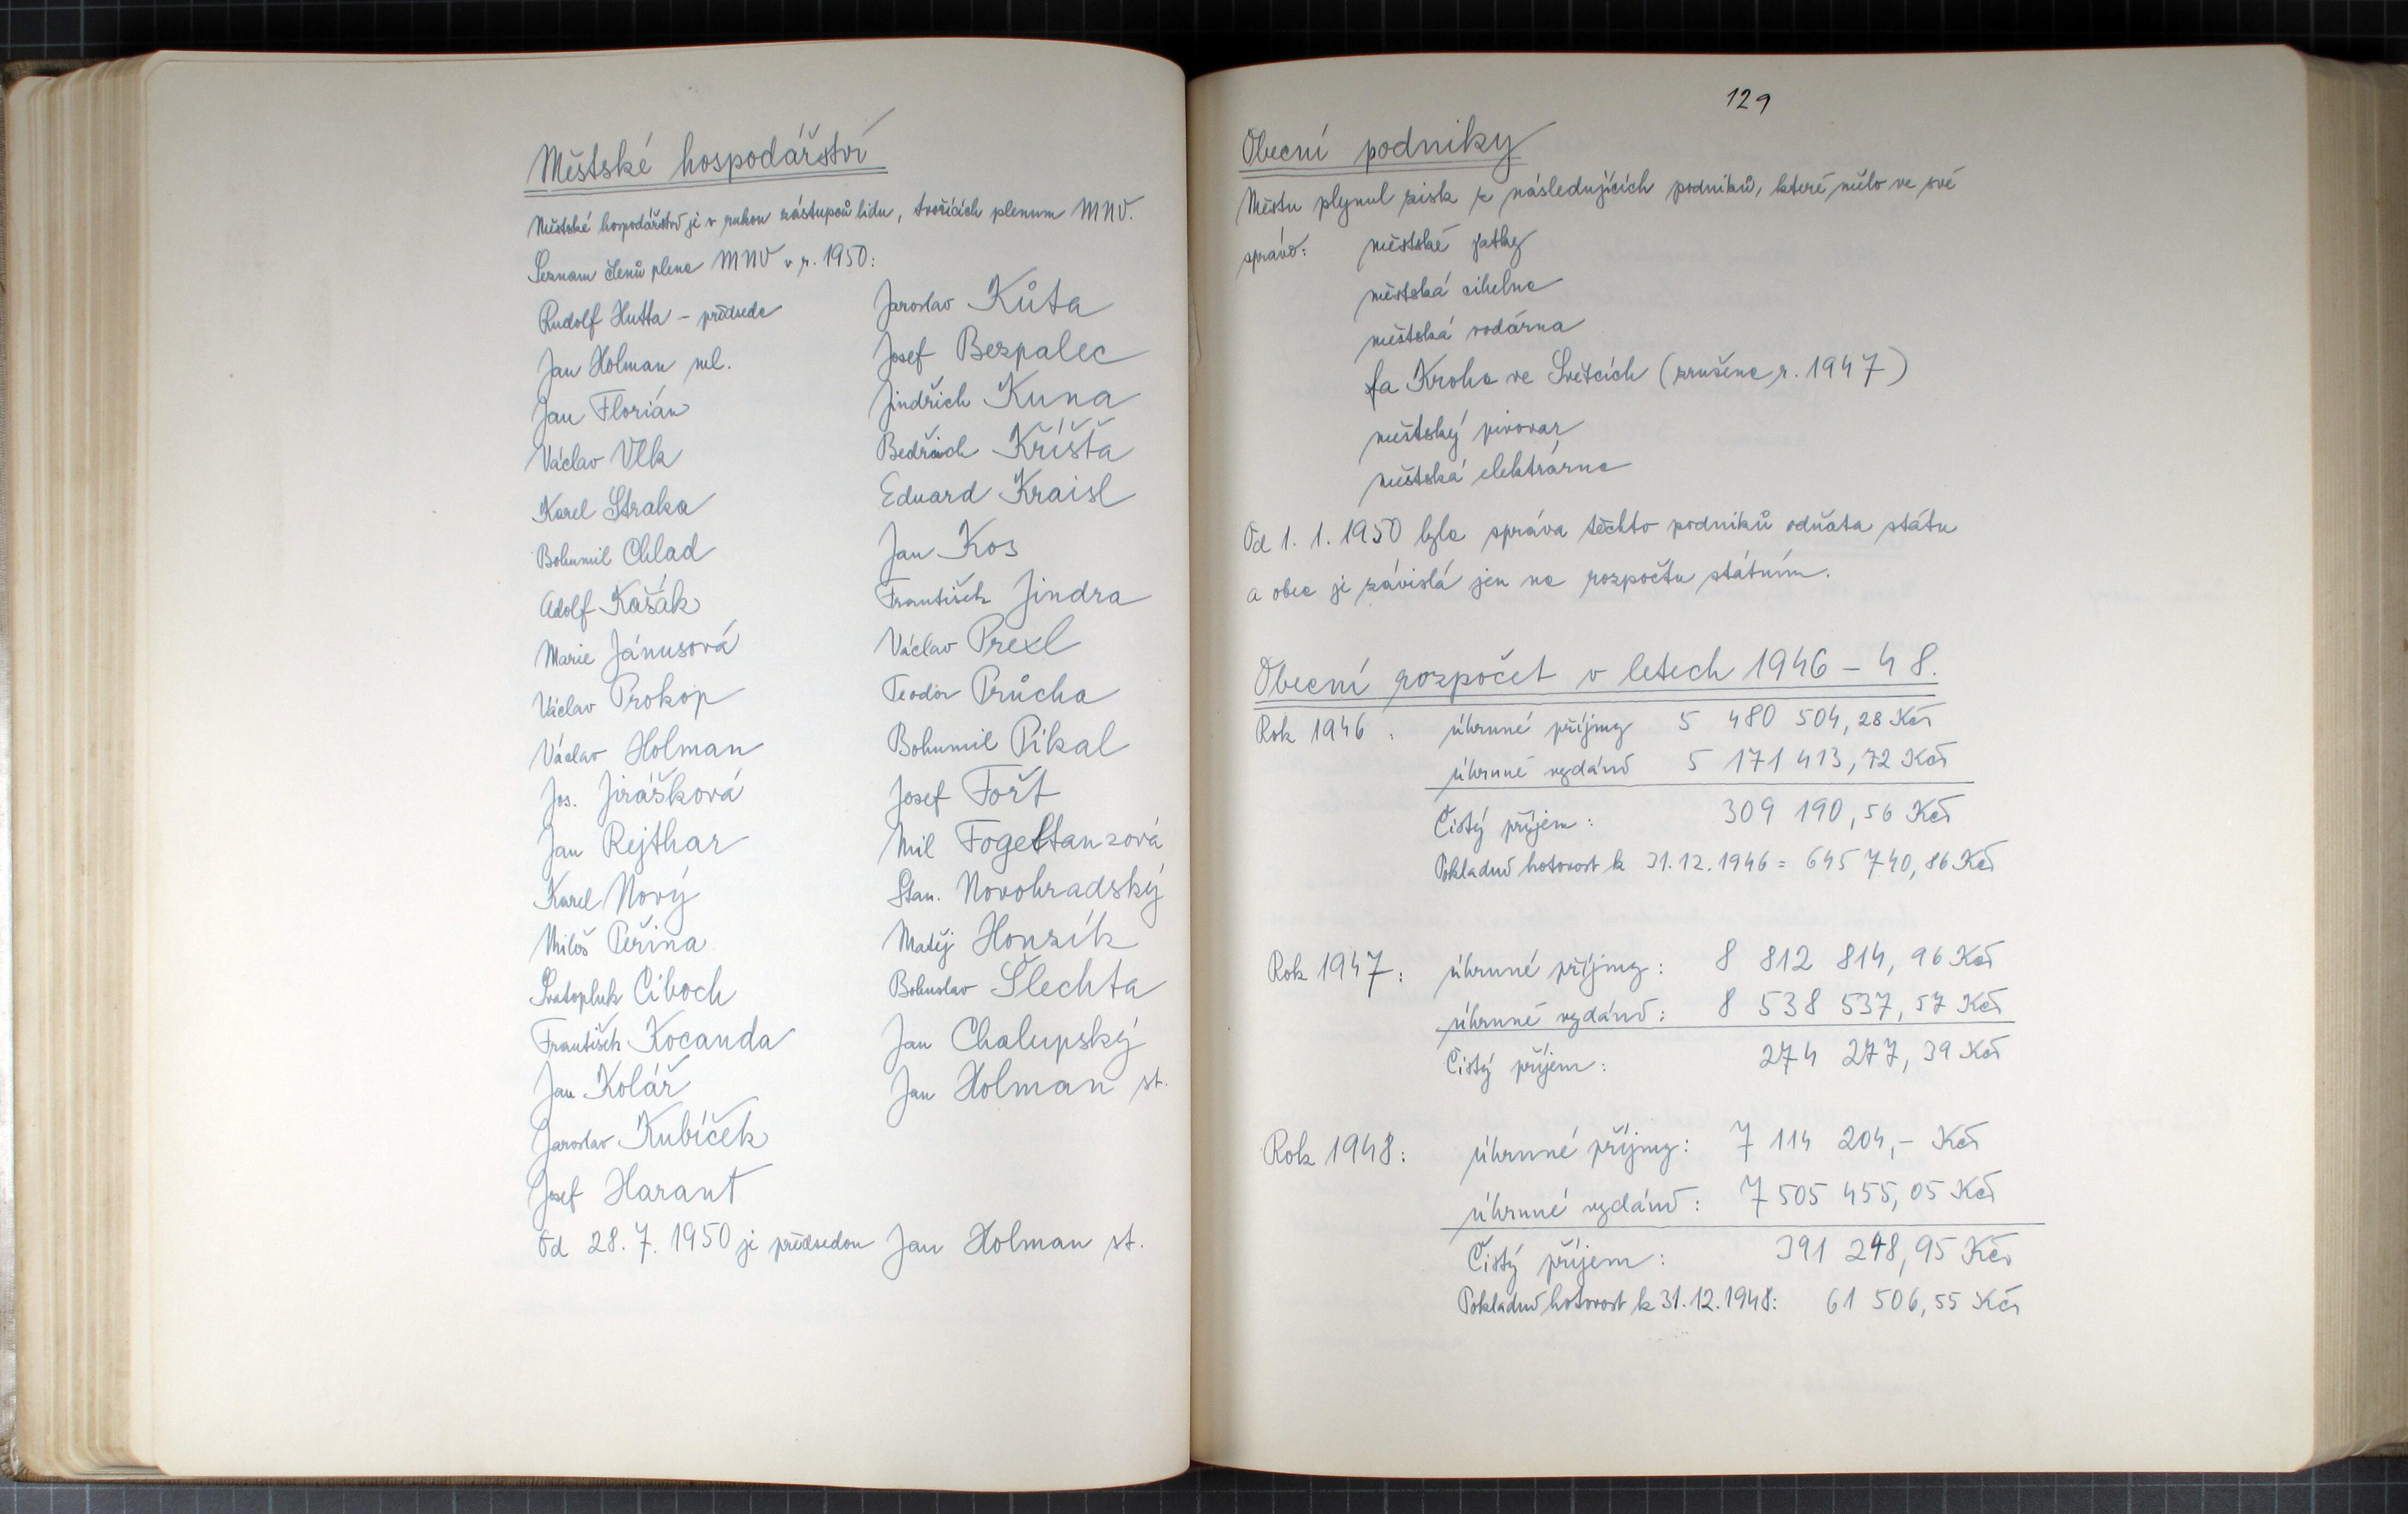 Městské hospodářství
Městské hospodářství je v rukou zástupců lidu, tvořících plenum MNV.
Seznam členů plena MNV v r. 1950:
Rudolf Hutta – předseda
Jan Holman ml.
Jan Florián
Václav Vlk
Karel Straka
Bohumil Chlad
Adolf Kašák
Marie Jánusová
Václav Prokop
Václav Holman
Jos. Jirášková
Jan Rejthar
Karel Nový
Miloš Peřina
Svatopluk Ciboch
František Kocanda
Jan Kolář
Jaroslav Kubíček
Josef Harant
Jaroslav Kůta
Josef Bezpalec
Jindřich Kuna
Bedřich Kříšťa
Eduard Kraisl
Jan Kos
František Jindra
Václav Prexl
Teodor Průcha
Bohumil Pikal
Josef Fořt
Mil Fogeltanzová
Stan. Novohradský
Matěj Honzík
Bohuslav Šlechta
Jan Chalupský
Jan Holman st.
Od 28. 7. 1950 je předsedou Jan Holman st.
129
Obecní podniky
Městu plynul zisk z následujících podniků, které mělo ve své
správě:
městské jatky
městská cihelna
městská vodárna
fa Kroha ve Světcích (zrušena r. 1947)
městský pivovar
městská elektrárna
Od 1. 1. 1950 byla správa těchto podniků odňata státu
a obec je závislá jen na rozpočtu státním.
Obecní rozpočet v letech 1946 – 48.
Rok 1946 : úhrnné příjmy 5 480 504,28 Kčs
úhrnné vydání 5 171 413,72 Kčs
Čistý příjem: 309 190,56 Kčs
Pokladní hotovost k 31.12.1946 = 645 740,86 Kčs
Rok 1947: úhrnné příjmy: 8 812 814,96 Kčs
úhrnné vydání: 8 538 537,57 Kčs
Čistý příjem: 274 277,39 Kčs
Rok 1948: úhrnné příjmy: 7 114 204,– Kčs
úhrnné vydání: 7 505 455,05 Kčs
Čistý příjem: 391 248,95 Kčs
Pokladní hotovost k 31.12.1948: 61 506,55 Kčs